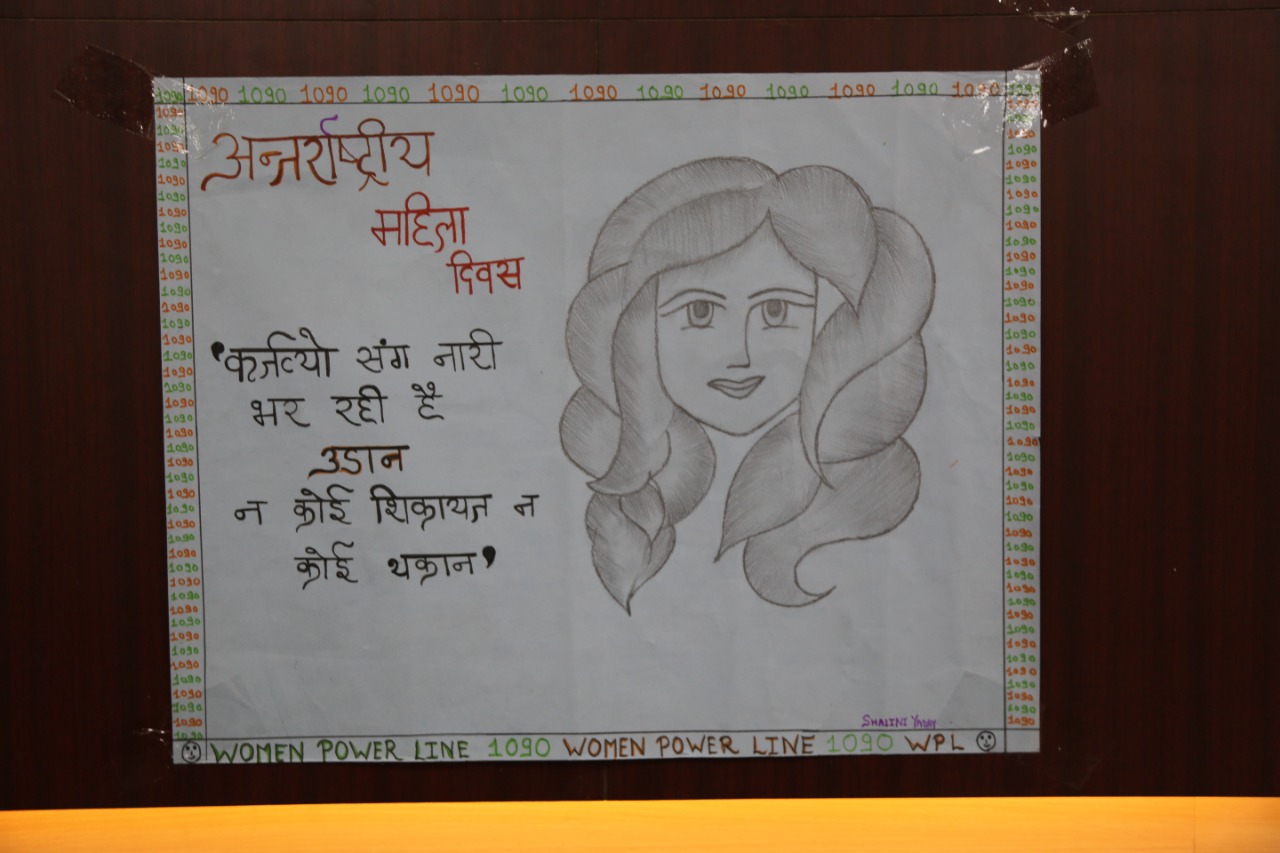 1090 1090 1090 1090 1090 1090 1090 1090 1090 1090 1090 1090 1090
अन्तर्राष्ट्रीय
महिला
दिवस
'कर्तव्यो संग नारी
भर रही है
उडान
न कोई शिकायत न
कोई थकान'
SHALINI YADAV
WOMEN POWER LINE 1090 WOMEN POWER LINE 1090 WPL